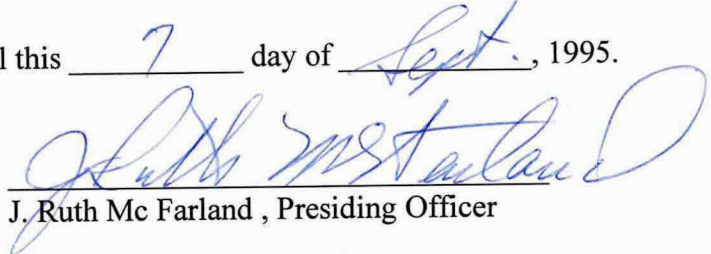 l this 7 day of Sept., 1995.
J Ruth McFarland
J. Ruth Mc Farland , Presiding Officer